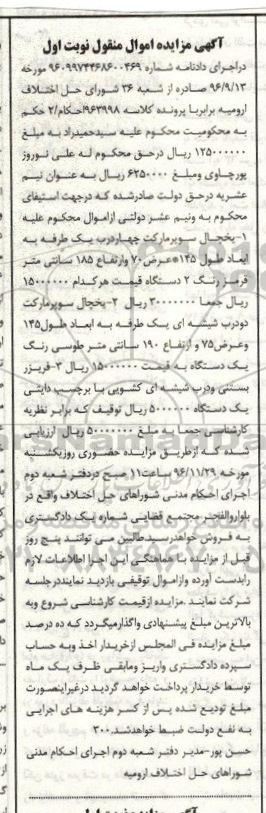 آگهی مزایده اموال منقول نوبت اول
دراجرای دادنامه شماره ۹۶۰۹۹۷۴۴۶۸۶۰۰۴۶۹ مورخه
۹۶/۹/۱۳ صادره از شعبه ۳۶ شورای حل اختلاف
ارومیه برابربا پرونده کلاسه ۹۶۳۹۹۸احکام/۲ حکم
به محکومیت محکوم علیه سیدحمیدراد به مبلغ
۱۲۵۰۰۰۰۰۰ ریال درحق محکوم له علی نوروز
پورچاوی ومبلغ ۶۲۵۰۰۰۰ ریال به عنوان نیم
عشریه درحق دولت صادرشده که درجهت استیفای
محکوم به ونیم عشر دولتی ازاموال محکوم علیه
۱-یخچال سوپرمارکت چهاردرب یک طرفه به
ابعاد طول ۱۴۵*عرض۷۰ وارتفاع ۱۸۵ سانتی متر
قرمز رنگ ۲ دستگاه قیمت هرکدام ۱۵۰۰۰۰۰۰
ریال جمعا ۳۰۰۰۰۰۰۰ ریال ۲-یخچال سوپرمارکت
دودرب شیشه ای یک طرفه به ابعاد طول۱۴۵
وعرض۷۵ و ارتفاع ۱۹۰ سانتی متر طوسی رنگ
یک دستگاه به قیمت ۱۵۰۰۰۰۰۰ ریال ۳-فریزر
بستنی ودرب شیشه ای کشویی با برچسب دایتی
یک دستگاه ۵۰۰۰۰۰۰ ریال توقیف که برابر نظریه
کارشناسی جمعا به مبلغ ۵۰۰۰۰۰۰۰ ریال ارزیابی
شده که ازطریق مزایده حضوری روزیکشنبه
مورخه ۹۶/۱۱/۲۹ ساعت۱۱ صبح دردفتر شعبه دوم
اجرای احکام مدنی شوراهای حل اختلاف واقع در
بلواروالفجر مجتمع قضایی شماره یک دادگستری
به فروش خواهدرسیدطالبین می توانند پنج روز
قبل از مزایده با هماهنگی این اجرا اطلاعات لازم
رابدست آورده وازاموال توقیفی بازدید نمایند درجلسه
شرکت نمایند .مزایده ازقیمت کارشناسی شروع وبه
بالاترین مبلغ پیشنهادی واگذارمیگردد که ده درصد
مبلغ مزایده فی المجلس ازخریدار اخذ وبه حساب
سپرده دادگستری واریز ومابقی ظرف یک ماه
توسط خریدار پرداخت خواهد گردید درغیراینصورت
مبلغ تودیع شده پس از کسر هزینه های اجرایی
به نفع دولت ضبط خواهدشد.۳۰۰
حسن پور-مدیر دفتر شعبه دوم اجرای احکام مدنی
شوراهای حل اختلاف ارومیه